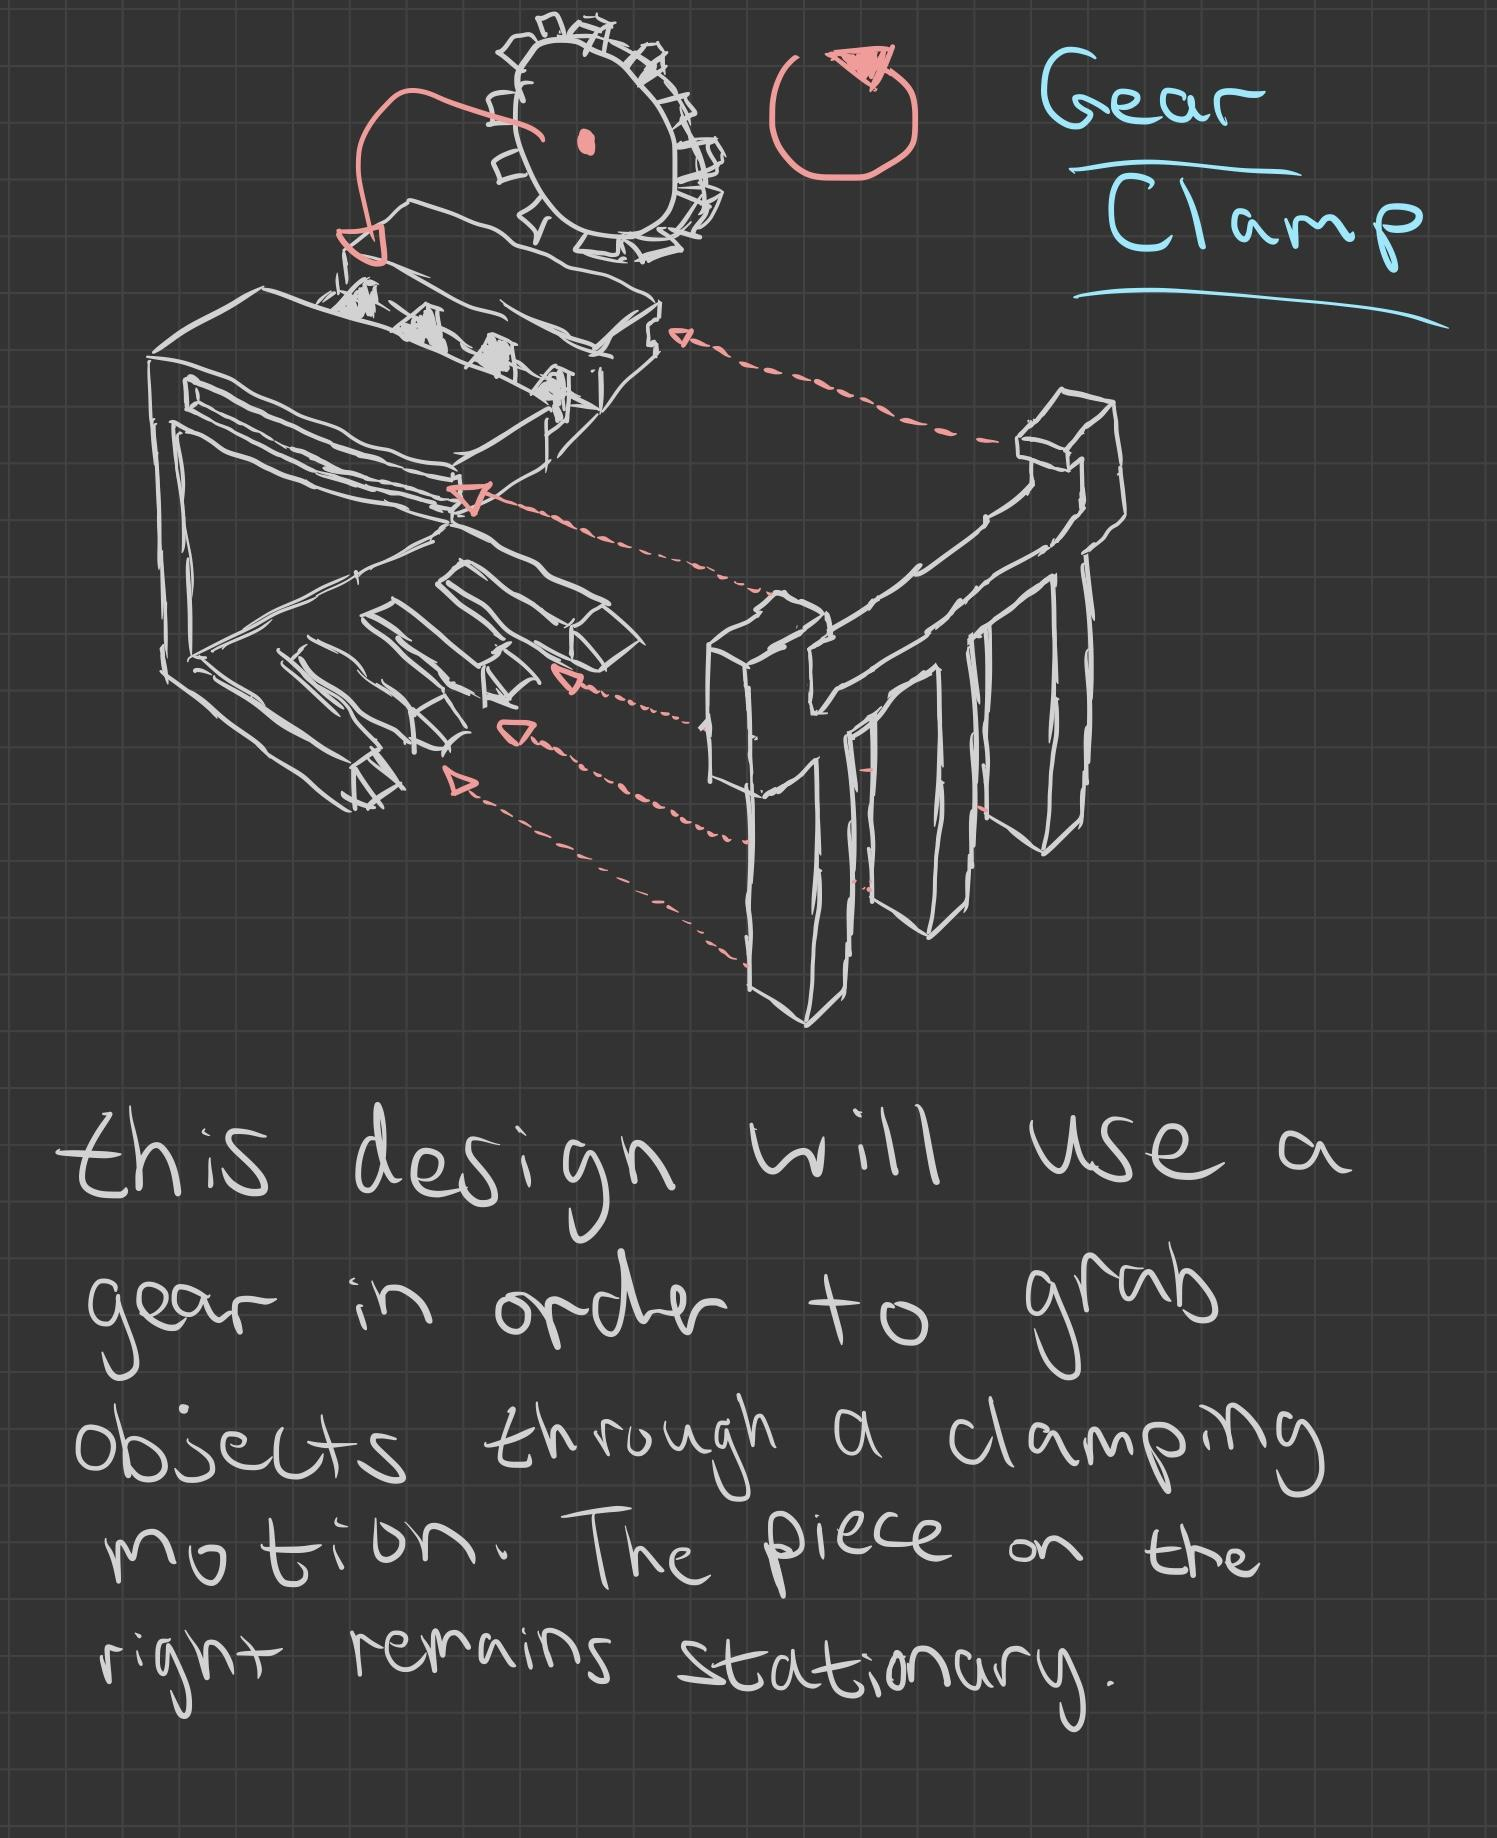 Gear
Clamp
this design will use a
gear in order to grab
objects through a clamping
motion. The piece on the
right remains stationary.